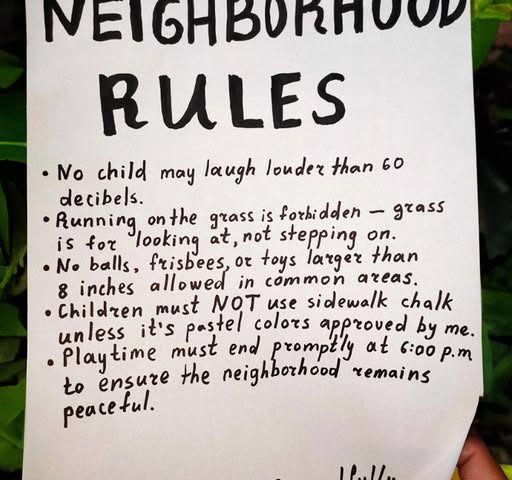 NEIGHBORHOOD
RULES
• No child may laugh louder than 60
decibels.
• Running on the grass is forbidden – grass
is for looking at, not stepping on.
• No balls, frisbees, or toys larger than
8 inches allowed in common areas.
• Children must NOT use sidewalk chalk
unless it's pastel colors approved by me.
• Playtime must end promptly at 6:00 p.m
to ensure the neighborhood remains
peaceful.